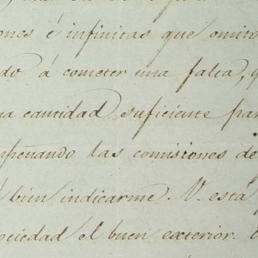 ones é infinitas que omito
do á cometer una falta, q
a cantidad suficiente par
mpeñando las comisiones de
bien indicarme. V. está
ociedad el buen exterior.